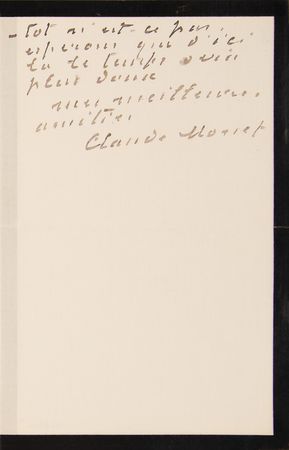 -tot n'est-ce pas,
esperons que d'ici
là le temps sera
plus doux
mes meilleures
amitiés
Claude Monet